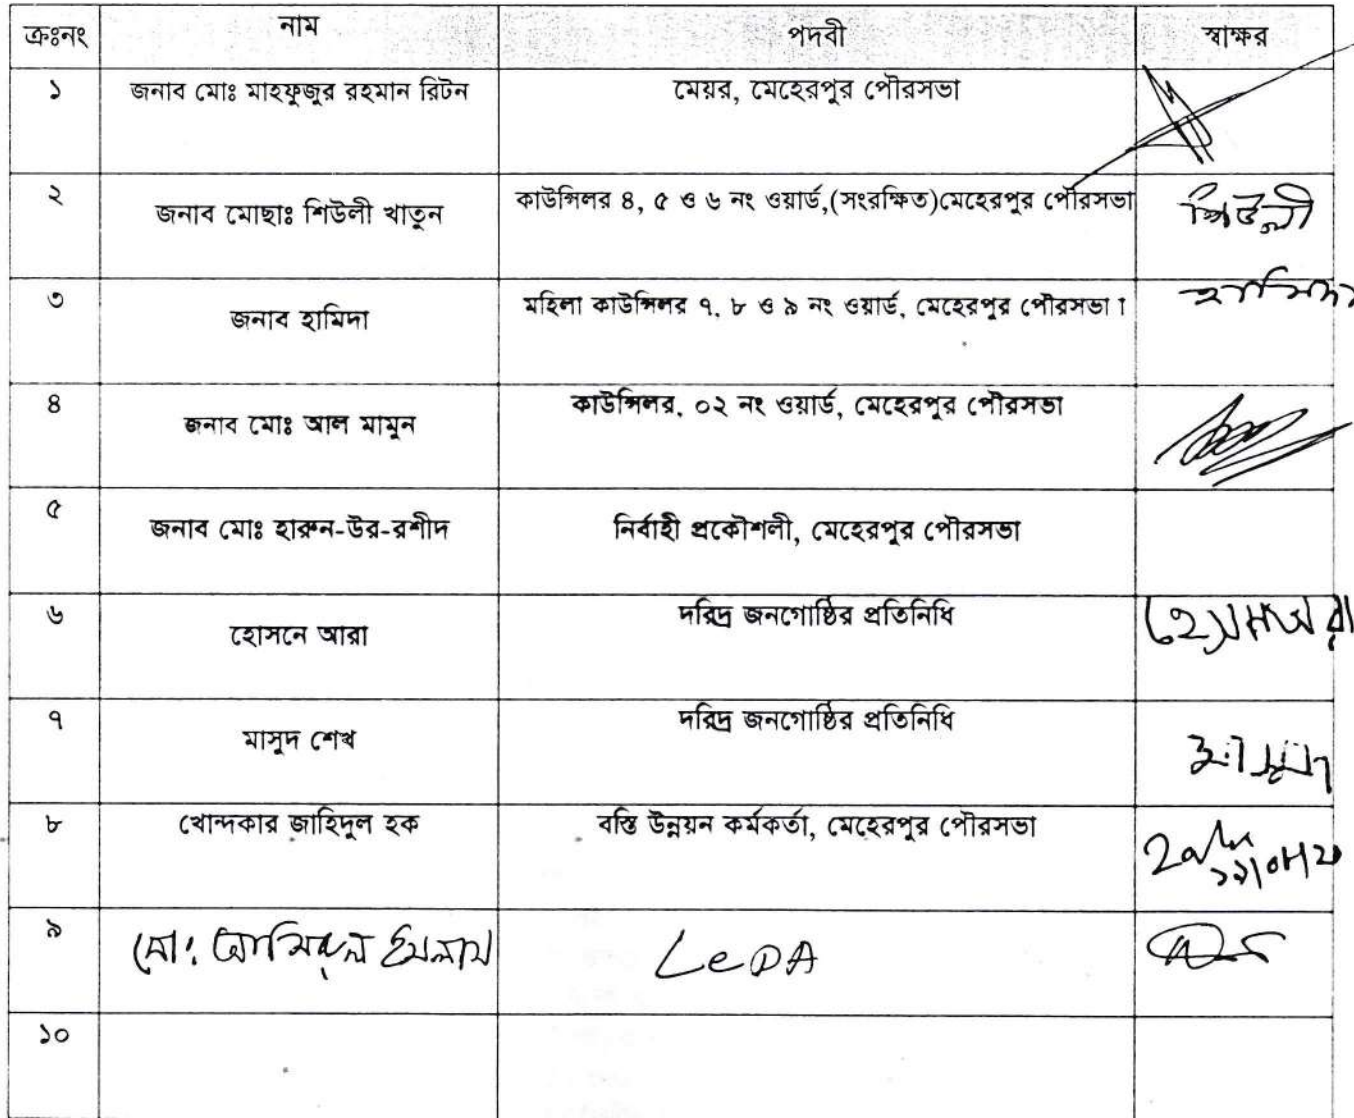 ক্রঃনং নাম পদবী স্বাক্ষর
১ জনাব মোঃ মাহফুজুর রহমান রিটন মেয়র, মেহেরপুর পৌরসভা
২ জনাব মোছাঃ শিউলী খাতুন কাউন্সিলর ৪, ৫ ও ৬ নং ওয়ার্ড,(সংরক্ষিত)মেহেরপুর পৌরসভা শিউলী
৩ জনাব হামিদা মহিলা কাউন্সিলর ৭, ৮ ও ৯ নং ওয়ার্ড, মেহেরপুর পৌরসভা। হামিদা
৪ জনাব মোঃ আল মামুন কাউন্সিলর, ০২ নং ওয়ার্ড, মেহেরপুর পৌরসভা
৫ জনাব মোঃ হারুন-উর-রশীদ নির্বাহী প্রকৌশলী, মেহেরপুর পৌরসভা
৬ হোসনে আরা দরিদ্র জনগোষ্ঠির প্রতিনিধি হোসনেআরা
৭ মাসুদ শেখ দরিদ্র জনগোষ্ঠির প্রতিনিধি মাসুদ
৮ খোন্দকার জাহিদুল হক বস্তি উন্নয়ন কর্মকর্তা, মেহেরপুর পৌরসভা
৯ মোঃ আমিরুল ইসলাম LeDA
১০